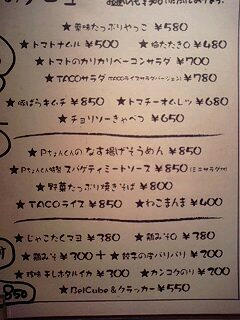 ★薬味たっぷりやっこ ¥580
★トマトナムル ¥500 ★梅たたきO ¥480
★トマトのカリカリベーコンサラダ ¥780
★TACOサラダ(TACOライスサラダバージョン) ¥700
★豚ばらキムチ ¥850 ★トマチーオムレツ ¥680
★チョリソーきゃべつ ¥650
★Pちょんくんのなす揚げそうめん ¥850
★Pちょんくん特製 スパゲティミートソース ¥850 (ミニサラダ付)
★野菜たっぷり焼きそば ¥800
★TACOライス ¥850 ★ねこまんま ¥400
★じゃこたくマヨ ¥380 ★鶏みそO ¥380
★鶏みそ ¥300 + ★餃子の皮パリパリ ¥200
★珍味 干しホタルイカ ¥300 ★カンコクのり ¥200
★BelCube&クラッカー ¥550
850